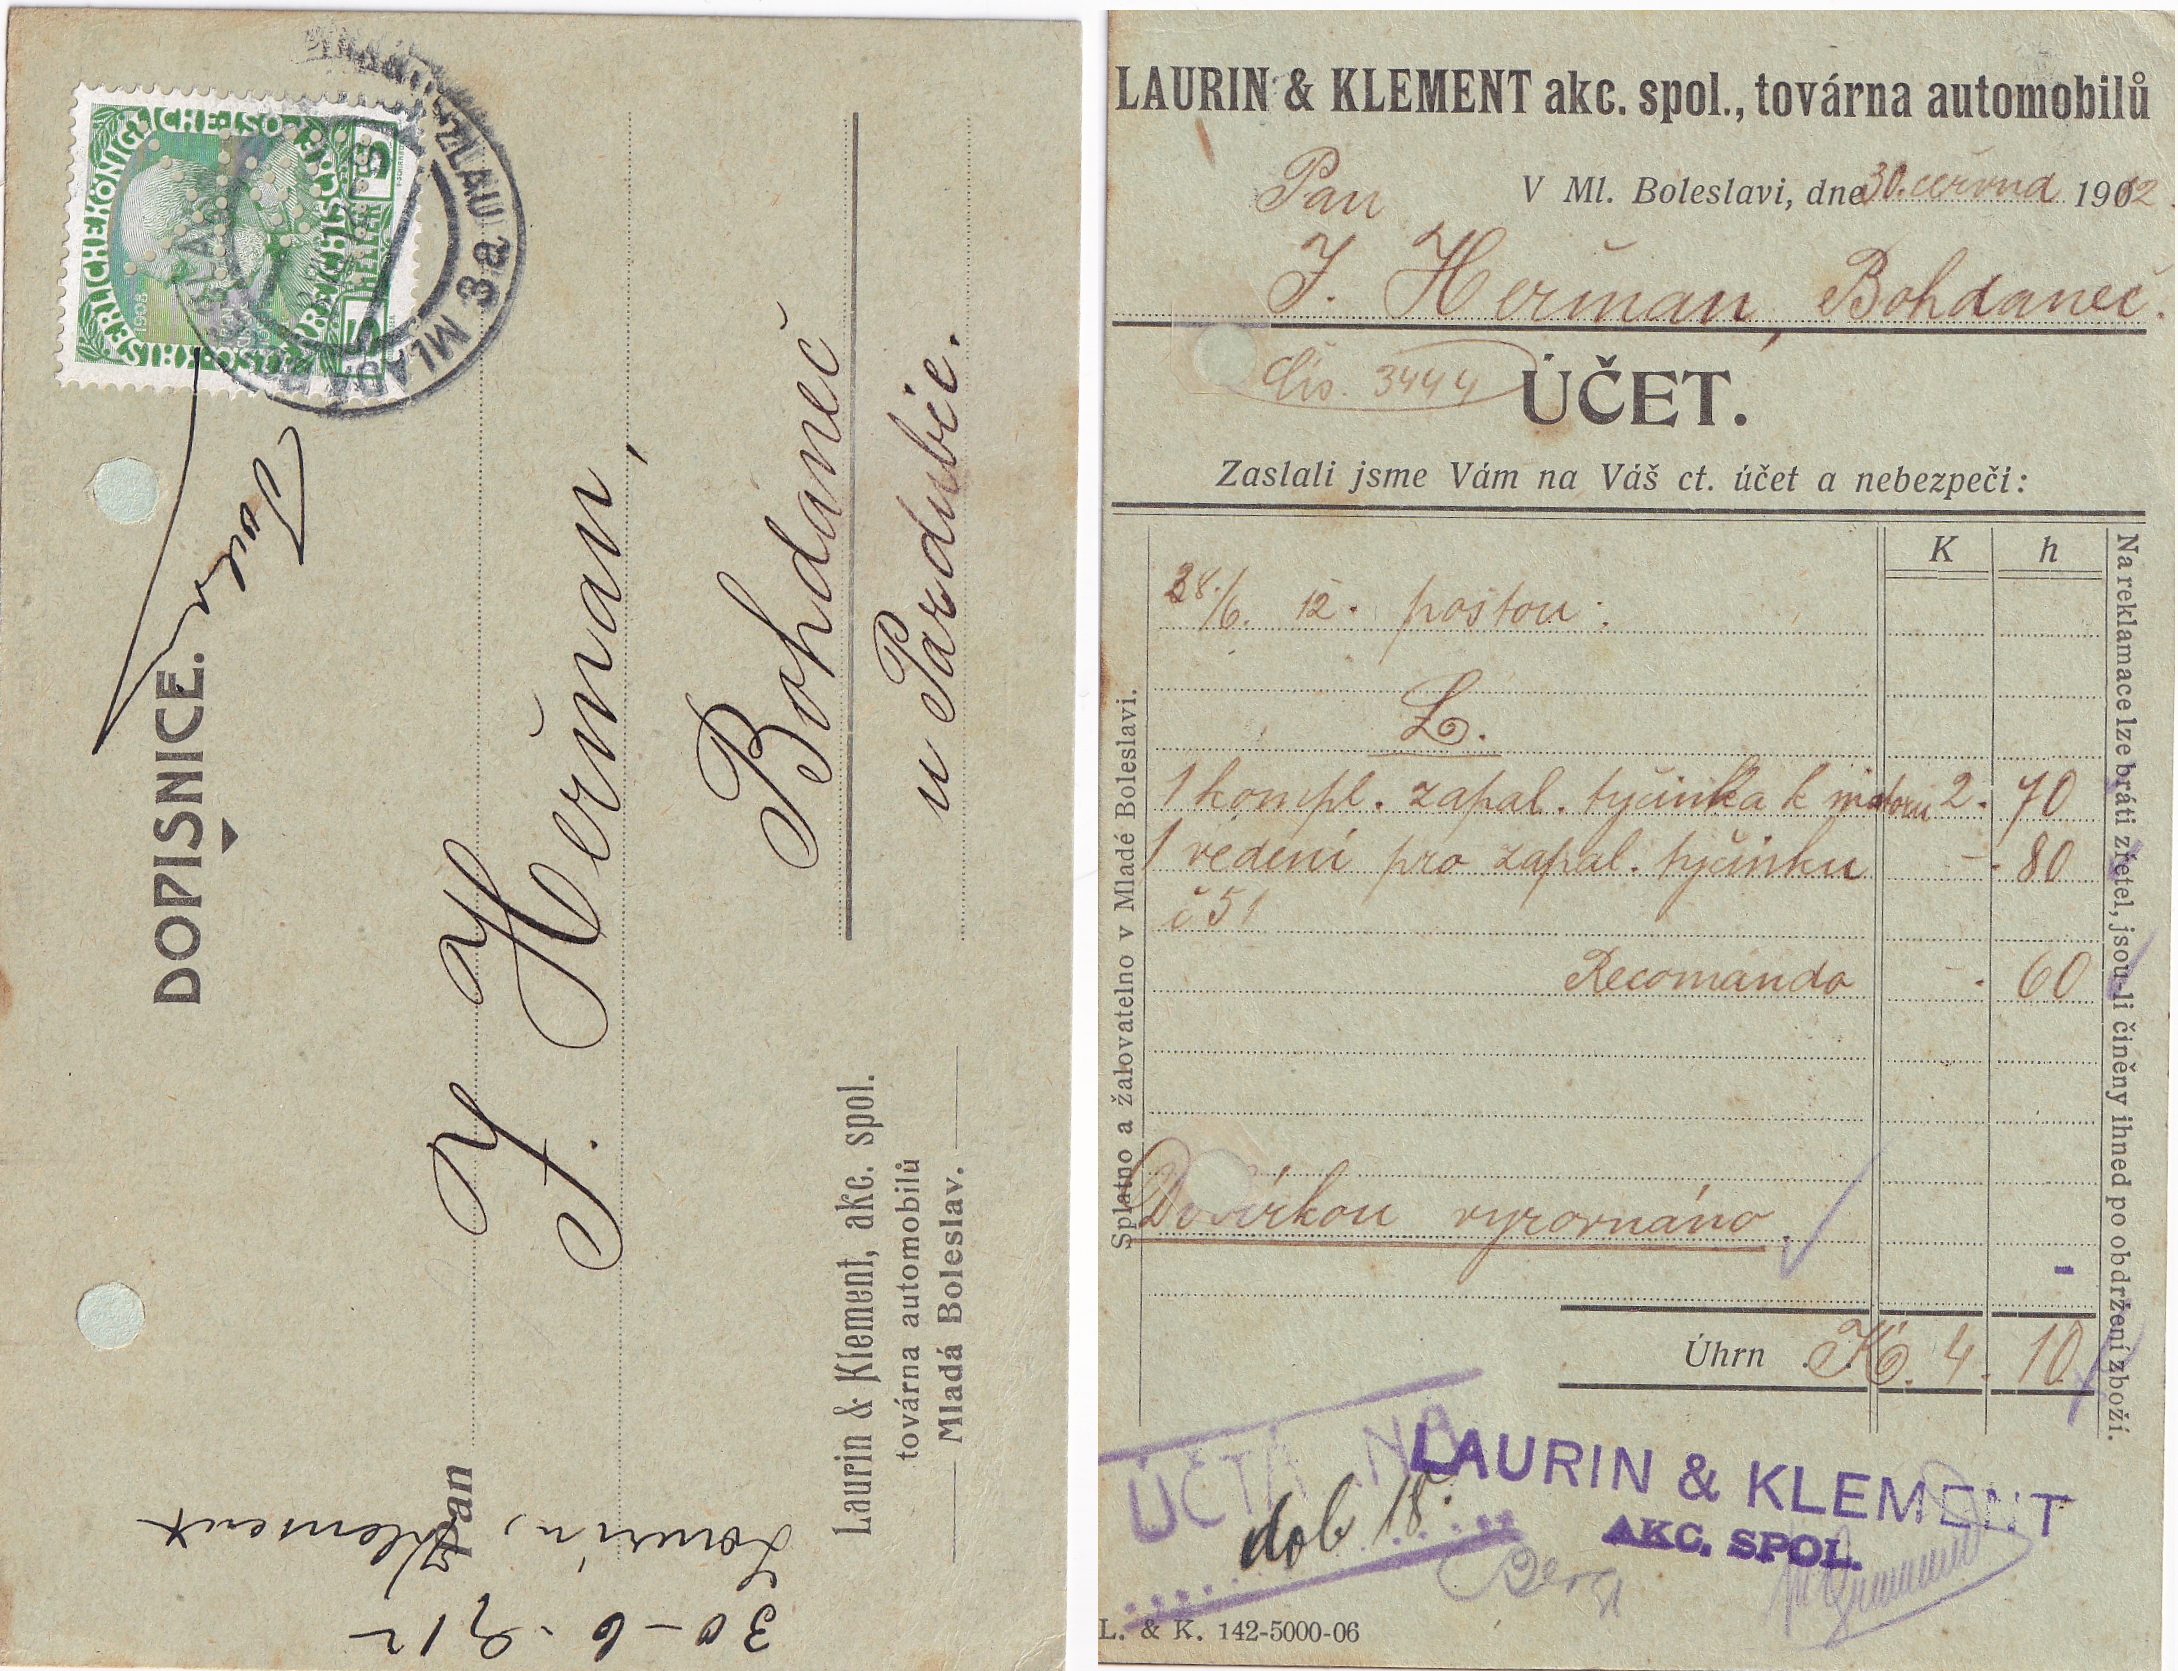 DOPISNICE.
Pan
J. Heřman,
Bohdaneč
u Pardubic.
Laurin & Klement, akc. spol.
továrna automobilů
Mladá Boleslav.
Laurin,
Klement
30-6-912
KAISERLICHE KÖNIGLICHE
1908
5 HELLER 5
MLADÁ
3a
LAURIN & KLEMENT akc. spol., továrna automobilů
V Ml. Boleslavi, dne 30. června 1912.
Pan
J. Heřman, Bohdaneč.
čís. 3444
ÚČET.
Zaslali jsme Vám na Váš ct. účet a nebezpečí:
K h
28./6. 12. poštou:
L.
1 kompl. zapal. tyčinka k motoru 2. 70
1 vedení pro zapal. tyčinku - . 80
č 51
Recomando - . 60
Dobírkou vyrovnáno.
Úhrn K 4. 10
Splatno a žalovatelno v Mladé Boleslavi.
Na reklamace lze bráti zřetel, jsou-li činěny ihned po obdržení zboží.
LAURIN & KLEMENT
AKC. SPOL.
dob 18.
L. & K. 142-5000-06